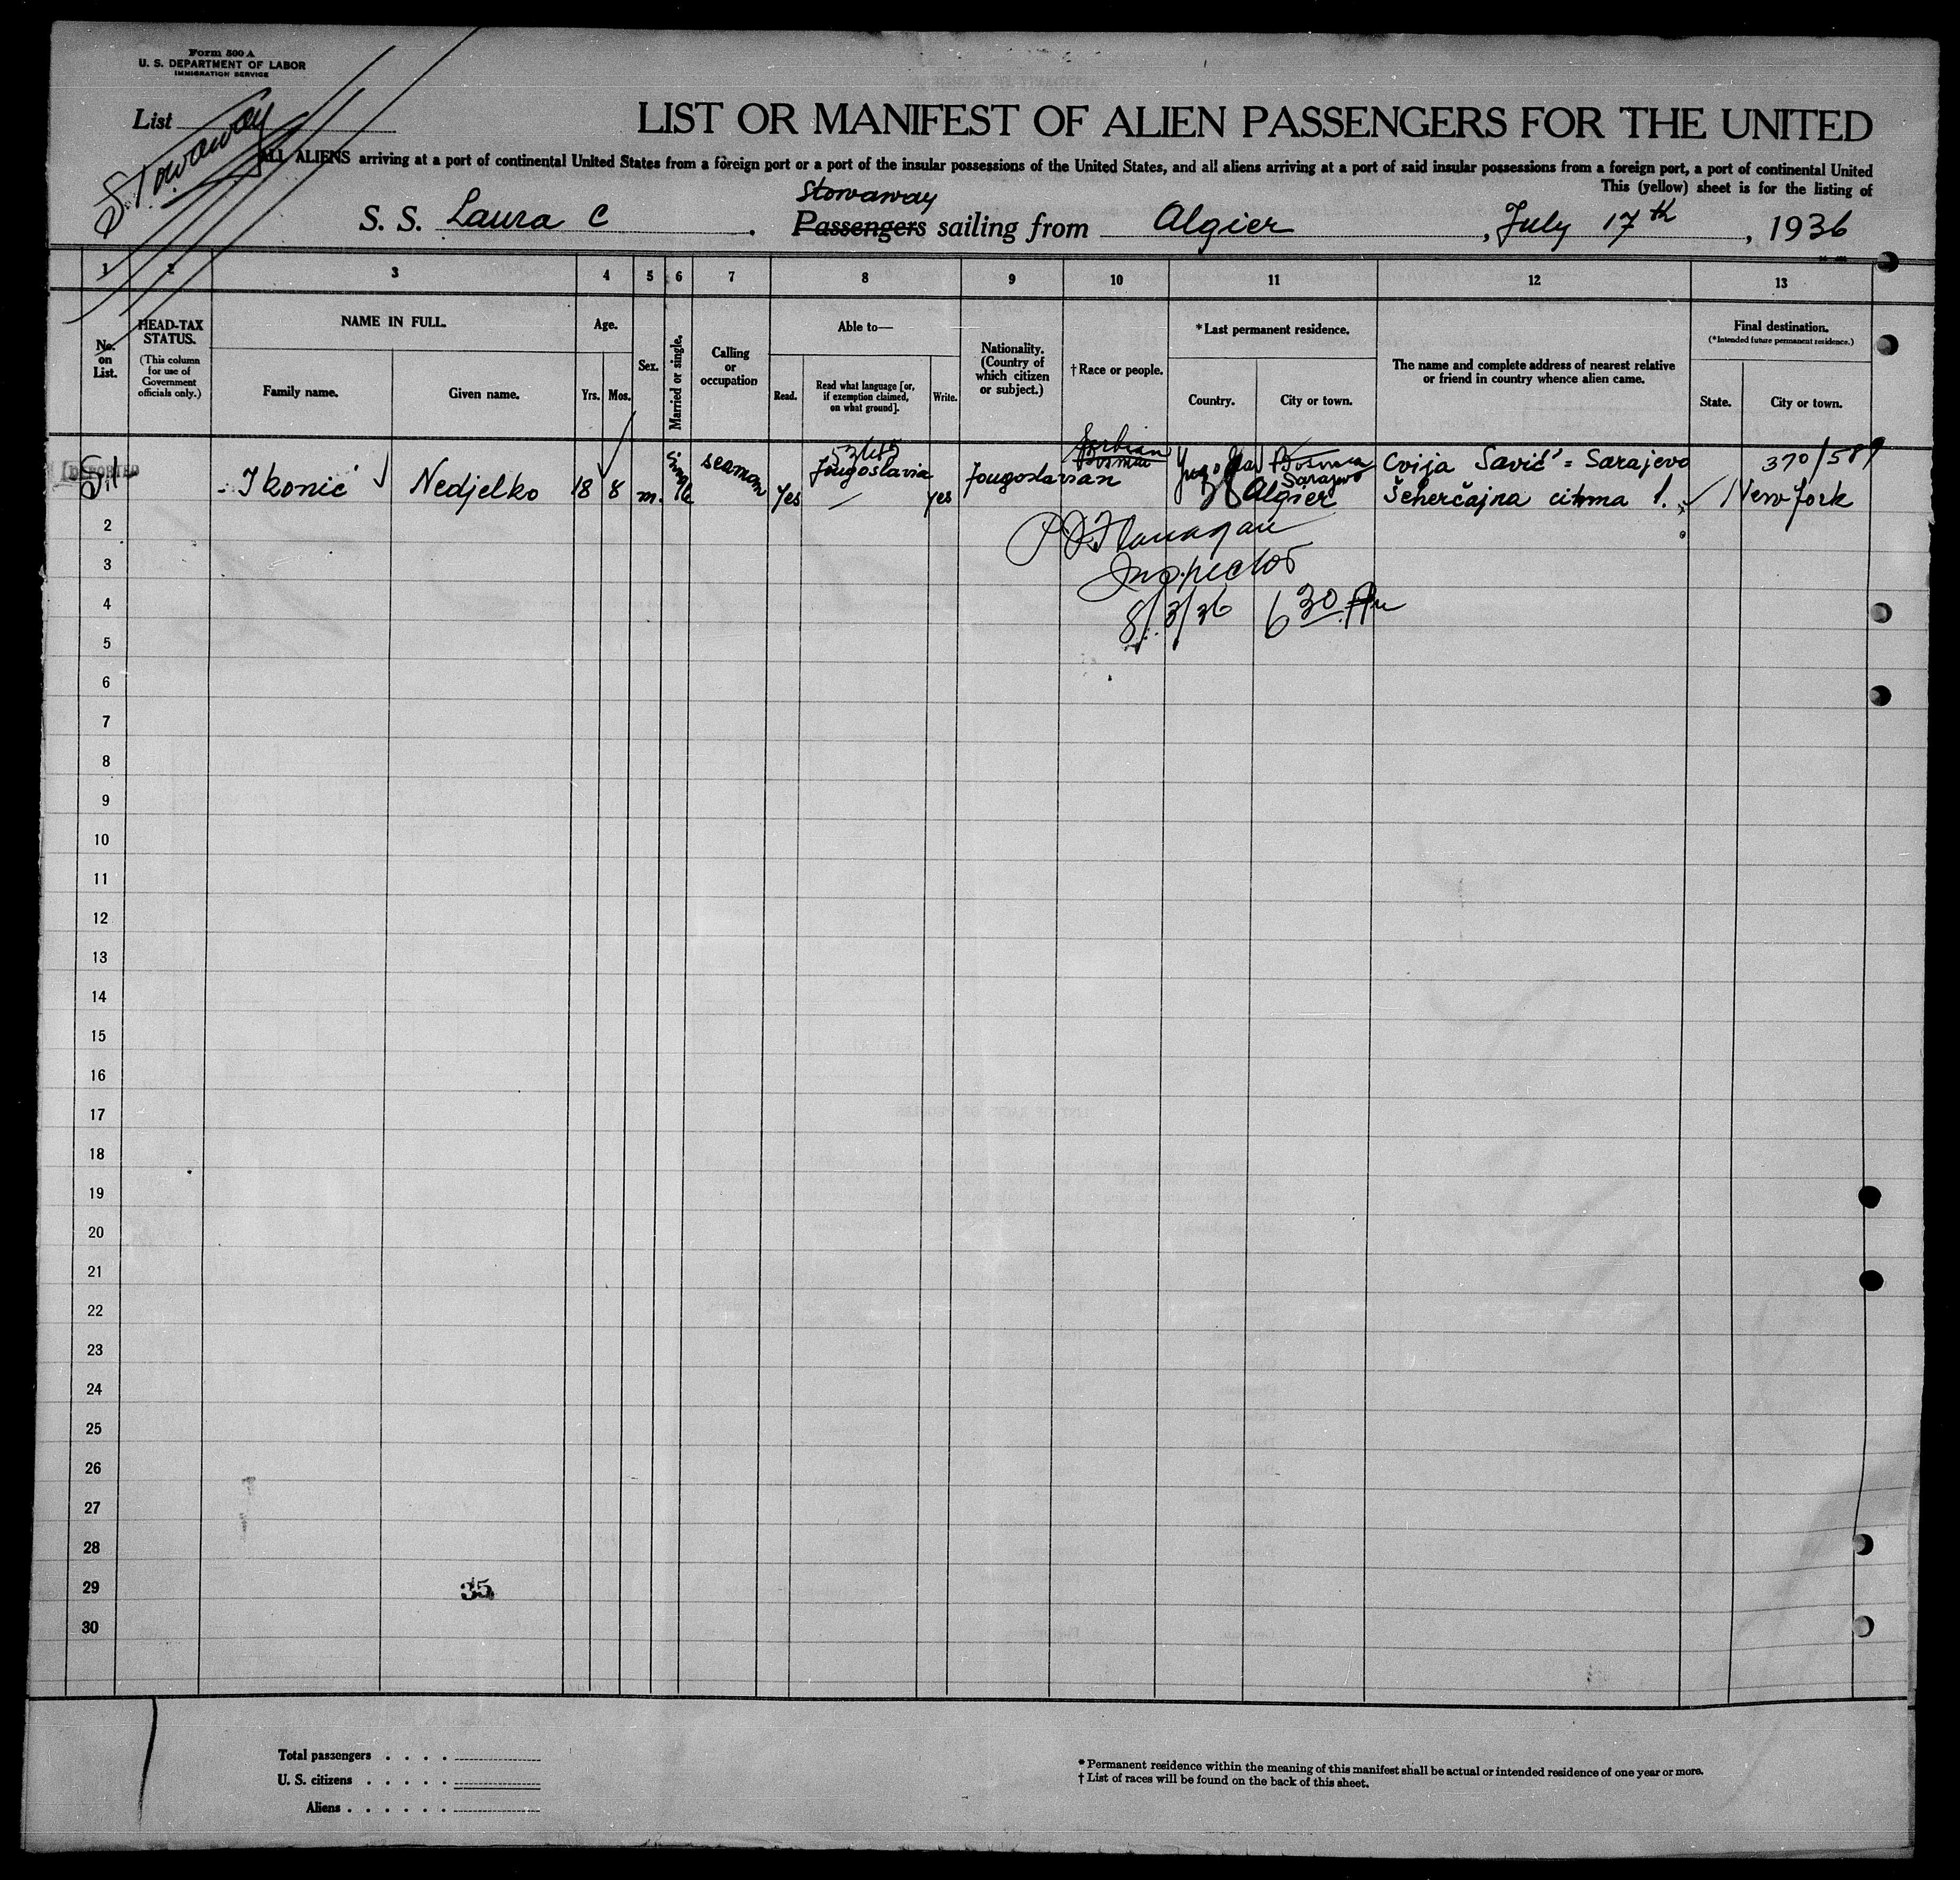 Form 500 A
U. S. DEPARTMENT OF LABOR
IMMIGRATION SERVICE
List
Stowaway
LIST OR MANIFEST OF ALIEN PASSENGERS FOR THE UNITED
ALL ALIENS arriving at a port of continental United States from a foreign port or a port of the insular possessions of the United States, and all aliens arriving at a port of said insular possessions from a foreign port, a port of continental United
This (yellow) sheet is for the listing of
Stowaway
S. S. Laura C. Passengers sailing from Algier, July 17th, 1936
1 2 3 4 5 6 7 8 9 10 11 12 13
No. on List.
HEAD-TAX STATUS.
(This column for use of Government officials only.)
NAME IN FULL.
Family name.
Given name.
Age.
Yrs. Mos.
Sex.
Married or single.
Calling or occupation
Able to—
Read.
Read what language [or, if exemption claimed, on what ground].
Write.
Nationality. (Country of which citizen or subject.)
†Race or people.
*Last permanent residence.
Country.
City or town.
The name and complete address of nearest relative or friend in country whence alien came.
Final destination.
(*Intended future permanent residence.)
State.
City or town.
DEPORTED
Serbian
Bosnia
Bosnia
Sarajevo
370/589
Ikonić Nedjelko 18 8 m. Single seaman Yes Jougoslavia yes Jougoslavian Algier
Cvija Savić = Sarajevo
Šeherčajna cihma 1. New York
Inspector
8/3/36 6 30
2
3
4
5
6
7
8
9
10
11
12
13
14
15
16
17
18
19
20
21
22
23
24
25
26
27
28
29
30
35
Total passengers . . . .
U. S. citizens . . . . .
Aliens . . . . . .
* Permanent residence within the meaning of this manifest shall be actual or intended residence of one year or more.
† List of races will be found on the back of this sheet.